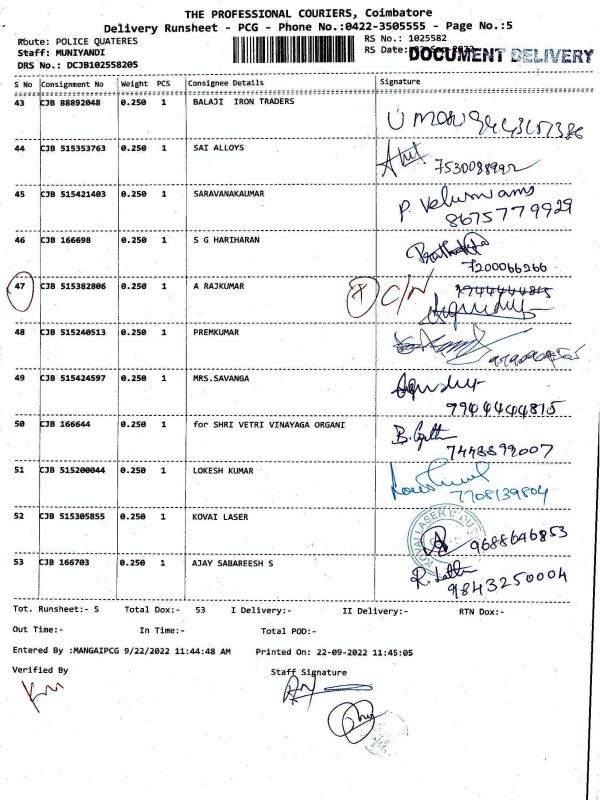 THE PROFESSIONAL COURIERS, Coimbatore
Delivery Runsheet - PCG - Phone No.:0422-3505555 - Page No.:5
Route: POLICE QUATERES RS No.: 1025582
Staff: MUNIYANDI RS Date: DOCUMENT DELIVERY
DRS No.: DCJB102558205
S No Consignment No Weight PCS Consignee Details Signature
43 CJB 88892048 0.250 1 BALAJI IRON TRADERS
44 CJB 515353763 0.250 1 SAI ALLOYS 7530088992
45 CJB 515421403 0.250 1 SARAVANAKAUMAR P.
8675779929
46 CJB 166698 0.250 1 S G HARIHARAN
7200066266
47 CJB 515382806 0.250 1 A RAJKUMAR C/N
48 CJB 515240513 0.250 1 PREMKUMAR
49 CJB 515424597 0.250 1 MRS.SAVANGA
7904444815
50 CJB 166644 0.250 1 for SHRI VETRI VINAYAGA ORGANI
7448899007
51 CJB 515200044 0.250 1 LOKESH KUMAR
7708139804
52 CJB 515305855 0.250 1 KOVAI LASER
9688646853
53 CJB 166703 0.250 1 AJAY SABAREESH S
9843250004
Tot. Runsheet:- 5 Total Dox:- 53 I Delivery:- II Delivery:- RTN Dox:-
Out Time:- In Time:- Total POD:-
Entered By :MANGAIPCG 9/22/2022 11:44:48 AM Printed On: 22-09-2022 11:45:05
Verified By Staff Signature